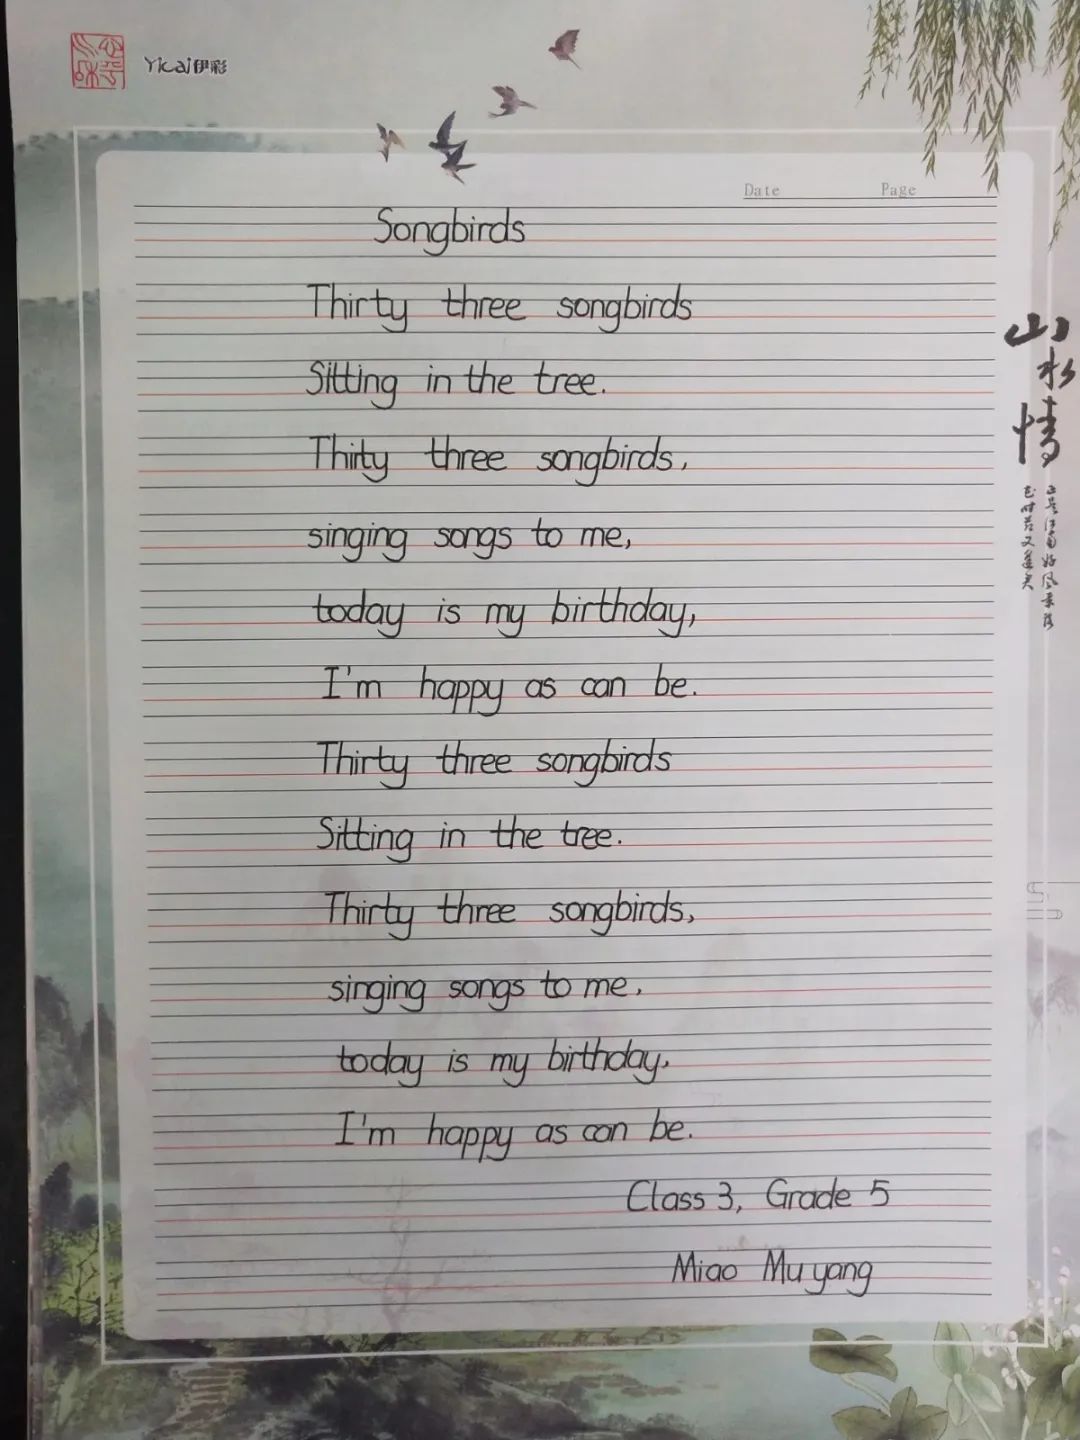 Yicai伊彩
Date Page
Songbirds
Thirty three songbirds
Sitting in the tree.
Thirty three songbirds,
singing songs to me,
today is my birthday,
I'm happy as can be.
Thirty three songbirds
Sitting in the tree.
Thirty three songbirds,
singing songs to me,
today is my birthday,
I'm happy as can be.
Class 3, Grade 5
Miao Mu yang
山水情
正是江南好风景
花时节又逢君